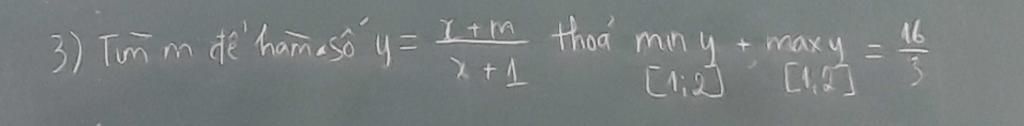 3) Tìm m để hàm số y = \frac{x+m}{x+1} thoả \min_{[1;2]} y + \max_{[1;2]} y = \frac{16}{3}